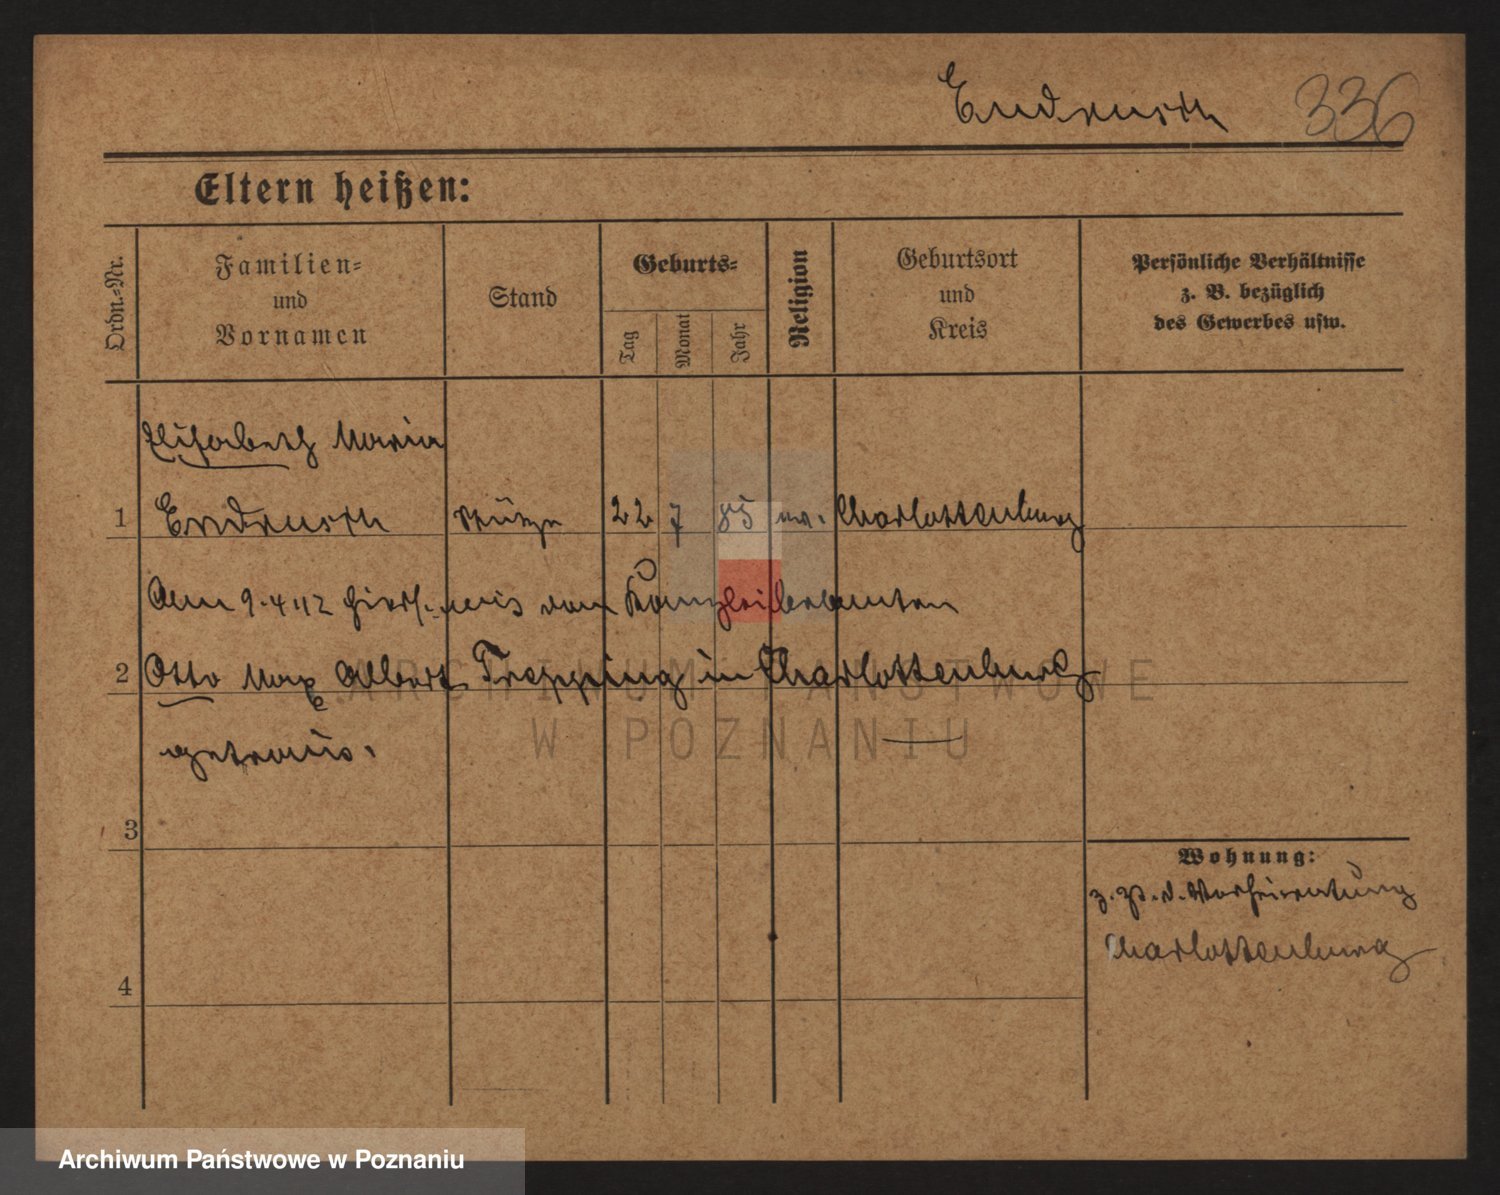 Endrusch 336
Eltern heißen:
Ordn.-Nr.
Familien-
und
Vornamen
Stand
Geburts-
Tag
Monat
Jahr
Religion
Geburtsort
und
Kreis
Persönliche Verhältnisse
z. B. bezüglich
des Gewerbes usw.
Elisabeth Maria
1 Endrusch Stütze 22 7 85 ev. Charlottenburg
Am 9.4.12 hiers. mit dem Kanzleibeamten
2 Otto Max Albert Trepping in Charlottenburg
getraut.
3
4
Wohnung:
z. Zt. d. Verheiratung
Charlottenburg
ARCHIWUM PAŃSTWOWE
W POZNANIU
Archiwum Państwowe w Poznaniu